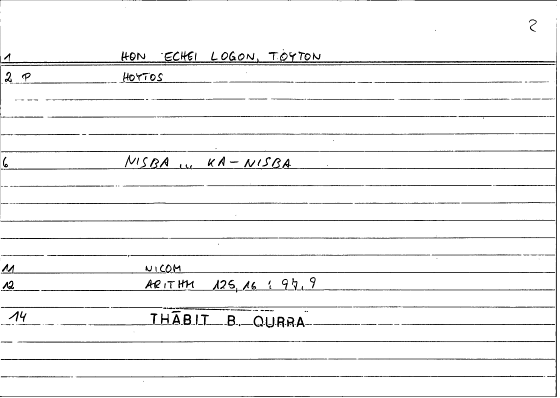 2
1 HON ECHEI LOGON, TOYTON
2 P HOYTOS
6 NISBA ... KA-NISBA
11 NICOM
12 ARITHM 125,16 : 94,9
14 THĀBIT B. QURRA